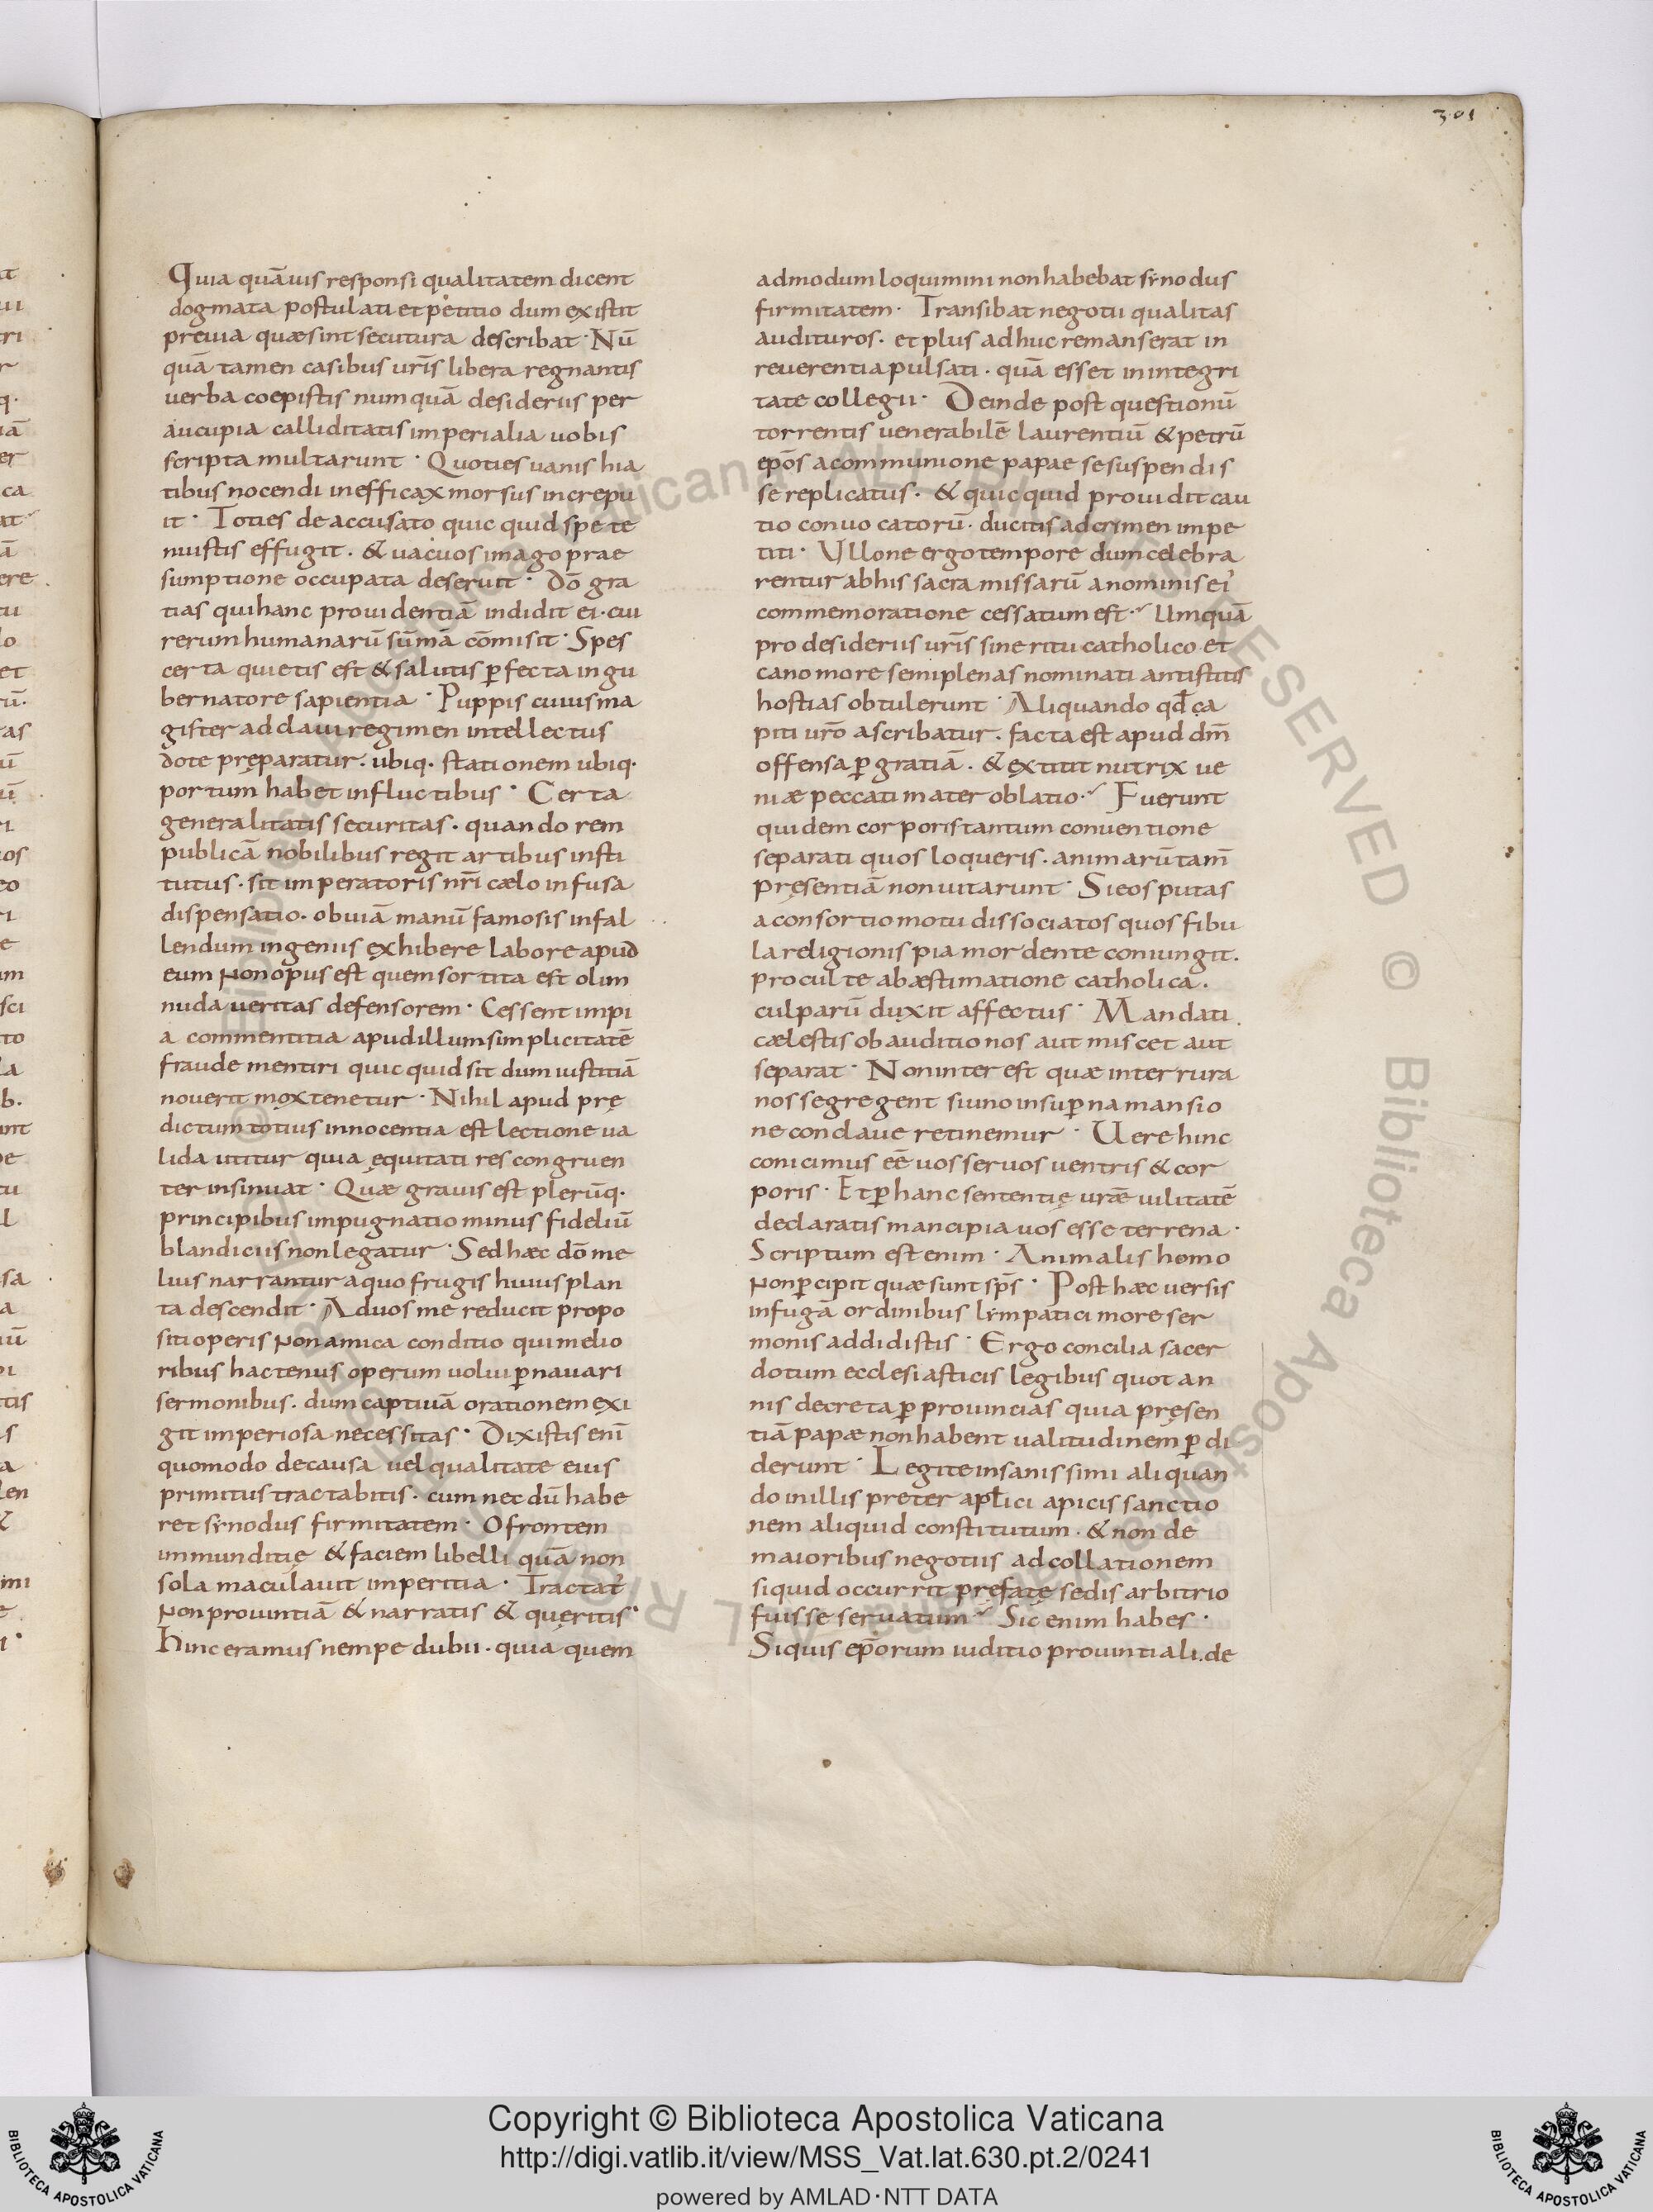 301
Quia quāuis responsi qualitatem dicent
dogmata postulati et petitio dum existit
preuia quæ sint secutura describat · Nū
quā tamen casibus ur̄is libera regnantis
uerba coepistis numquā desideriis per
aucupia calliditatis imperialia uobis
scripta multarunt · Quoties uanis hia
tibus nocendi inefficax morsus increpu
it · Toties de accusato quicquid spe te
nuistis effugit . & uacuos imago prae
sumptione occupata deseruit · Dō gra
tias qui hanc prouidentiā indidit ei · cui
rerum humanarū sūmā cōmisit · Spes
certa quietis est & salutis p̄fecta in gu
bernatore sapientia · Puppis cuius ma
gister ad claui regimen intellectus
dote pręparatur . ubiq· stationem ubiq·
portum habet in fluctibus · Certa
generalitatis securitas . quando rem
publicā nobilibus regit artibus insti
tutus . sit imperatoris nr̄i cælo infusa
dispensatio . obuiā manū famosis infal
lendum ingeniis exhibere labore apud
eum non opus est quem sortita est olim
nuda ueritas defensorem · Cessent impi
a commentitia apud illum simplicitatē
fraude mentiri quicquid sit dum iustitiā
nouerit mox tenetur · Nihil apud prę
dictum totius innocentia est lectione ua
lida utitur quia ęquitati res congruen
ter insinuat · Quæ grauis est plerūq·
principibus impugnatio minus fideliū
blandiciis non legatur · Sed hæc dō me
lius narrantur a quo frugis huius plan
ta descendit · Ad uos me reducit propo
siti operis non amica conditio qui melio
ribus hactenus operum uolui p̄nauari
sermonibus . dum captiuā orationem exi
git imperiosa necessitas · Dixistis enī
quomodo de causa uel qualitate eius
primitus tractabitis . cum nec dū habe
ret synodus firmitatem · O frontem
inmunditię & faciem libelli quā non
sola maculauit imperitia · Tractat'
non prouintiā & narratis & quęritis ·
Hinc eramus nempe dubii . quia quem
admodum loquimini non habebat synodus
firmitatem · Transibat negotii qualitas
audituros . et plus adhuc remanserat in
reuerentia pulsati . quā esset in integri
tate collegii · Deinde post questionū
torrentis uenerabilē laurentiū & petrū
ep̄os a communione papae se suspendis
se replicatus . & quicquid prouidit cau
tio conuocatorū . ducitis ad crimen impe
titi · Ullone ergo tempore dum celebra
rentur ab his sacra missarū a nominis ei'
commemoratione cessatum est · Umquā
pro desideriis ur̄is sine ritu catholico et
cano more semiplenas nominati antistitis
hostias obtulerunt · Aliquando qđ ca
piti ur̄o ascribatur . facta est apud dn̄m
offensa p̄ gratiā . & extitit nutrix ue
niæ peccati mater oblatio · Fuerunt
quidem corporis tantum conuentione
separati quos loqueris . animarū tam̄
pręsentiā non uitarunt · Si eos putas
a consortio motu dissociatos quos fibu
la religionis pia mordente coniungit .
procul te ab æstimatione catholica .
culparū duxit affectus · Mandati
cælestis obauditio nos aut miscet aut
separat · Non interest quæ inter rura
nos segregent si uno in sup̄na mansio
ne conclaue retinemur · Uere hinc
conicimus eē uos seruos uentris & cor
poris · Et p̄ hanc sententię urǣ uilitatē
declaratis mancipia uos esse terrena ·
Scriptum est enim · Animalis homo
non p̄cipit quæ sunt sp̄s · Post hæc uersis
in fugā ordinibus lympatici more ser
monis addidistis · Ergo concilia sacer
dotum ecclesiasticis legibus quot an
nis decreta p̄ prouincias quia pręsen
tiā papæ non habent ualitudinem p̄di
derunt · Legite insanissimi aliquan
do in illis preter apl̄ici apicis sanctio
nem aliquid constitutum . & non de
maioribus negotiis ad collationem
siquid occurrit pręfatę sedis arbitrio
fuisse seruatum · Sic enim habes ·
Siquis ep̄orum iuditio prouintiali . de
Copyright © Biblioteca Apostolica Vaticana
http://digi.vatlib.it/view/MSS_Vat.lat.630.pt.2/0241
powered by AMLAD·NTT DATA
BIBLIOTECA APOSTOLICA VATICANA
BIBLIOTECA APOSTOLICA VATICANA